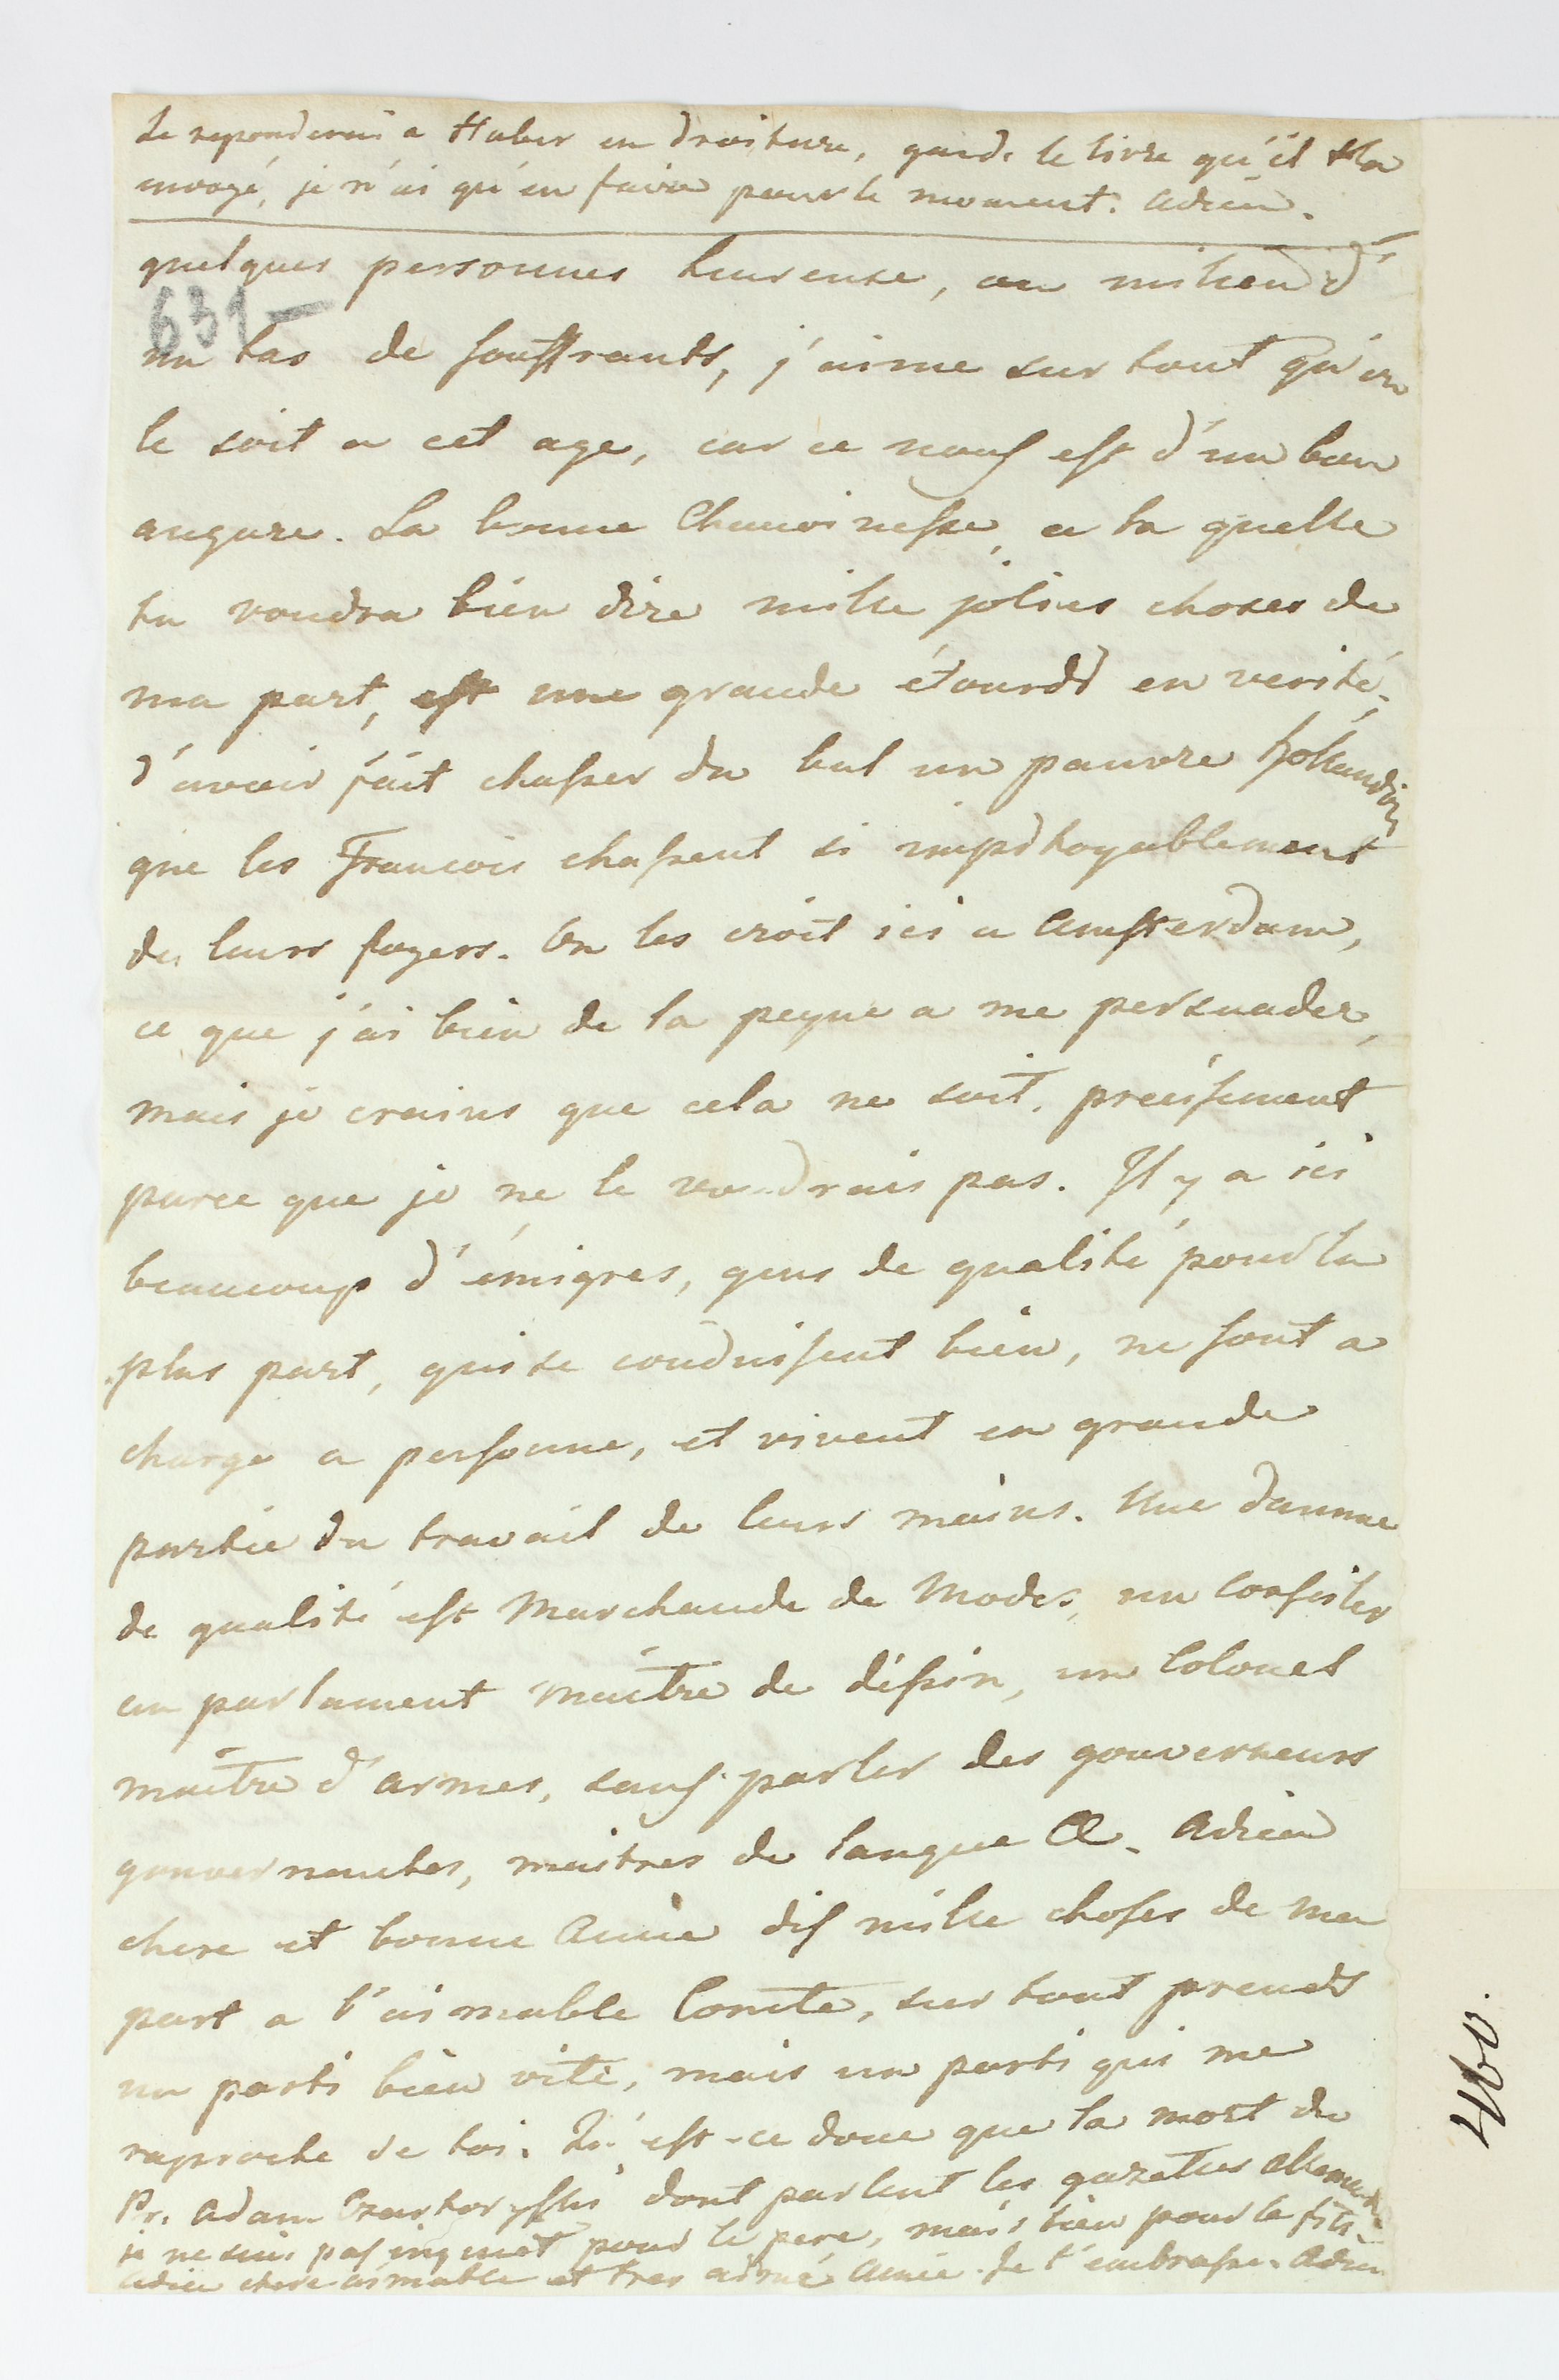 Je reponderai a Huber en droiture, garde le livre qu'il t'a
envoyé, je n'ai qu'en faire pour le moment. adieu.
quelques personnes heureuse, au milieu d'
631-
un tas de souffrants, j'aime sur tout qu'on
le soit a cet age, car ce nous est d'un bon
augure. La bonne Chanoinesse, a la quelle
tu voudra bien dire mille jolies choses de
ma part, est une grande étourdi en verité,
d'avoir fait chasser du bal un pauvre hollandois
que les Francois chassent si impitoyablement
de leurs foyers. On les croit ici a Amsterdam,
ce que j'ai bien de la peyne a me persuader,
mais je crains que cela ne soit, precisement
parce que je ne le voudrais pas. Il y a ici
beaucoup d'émigres, gens de qualité pour la
plus part, qui se conduisent bien, ne sont a
charge a personne, et vivent en grande
partie du travail de leurs mains. Une damme
de qualité est Marchande de Modes, un Consiler
au parlament maître de dessin, un Colonel
maître d'armes, sans parler des gouverneurs
gouvernantes, maitres de langue &. Adieu
chere et bonne Amie dis mille choses de ma
part a l'aimable Comte, sur tout prends
un parti bien vite, mais un parti qui me
raproche de toi. Qu'est-ce donc que la mort du
Pr. Adam Czartoryski dont parlent les gazettes allemandes
je ne suis pas inquiet pour le pere, mais bien pour le fils.
adieu chere aimable et tres aimé Amie. Je t'embrasse. Adieu
460.